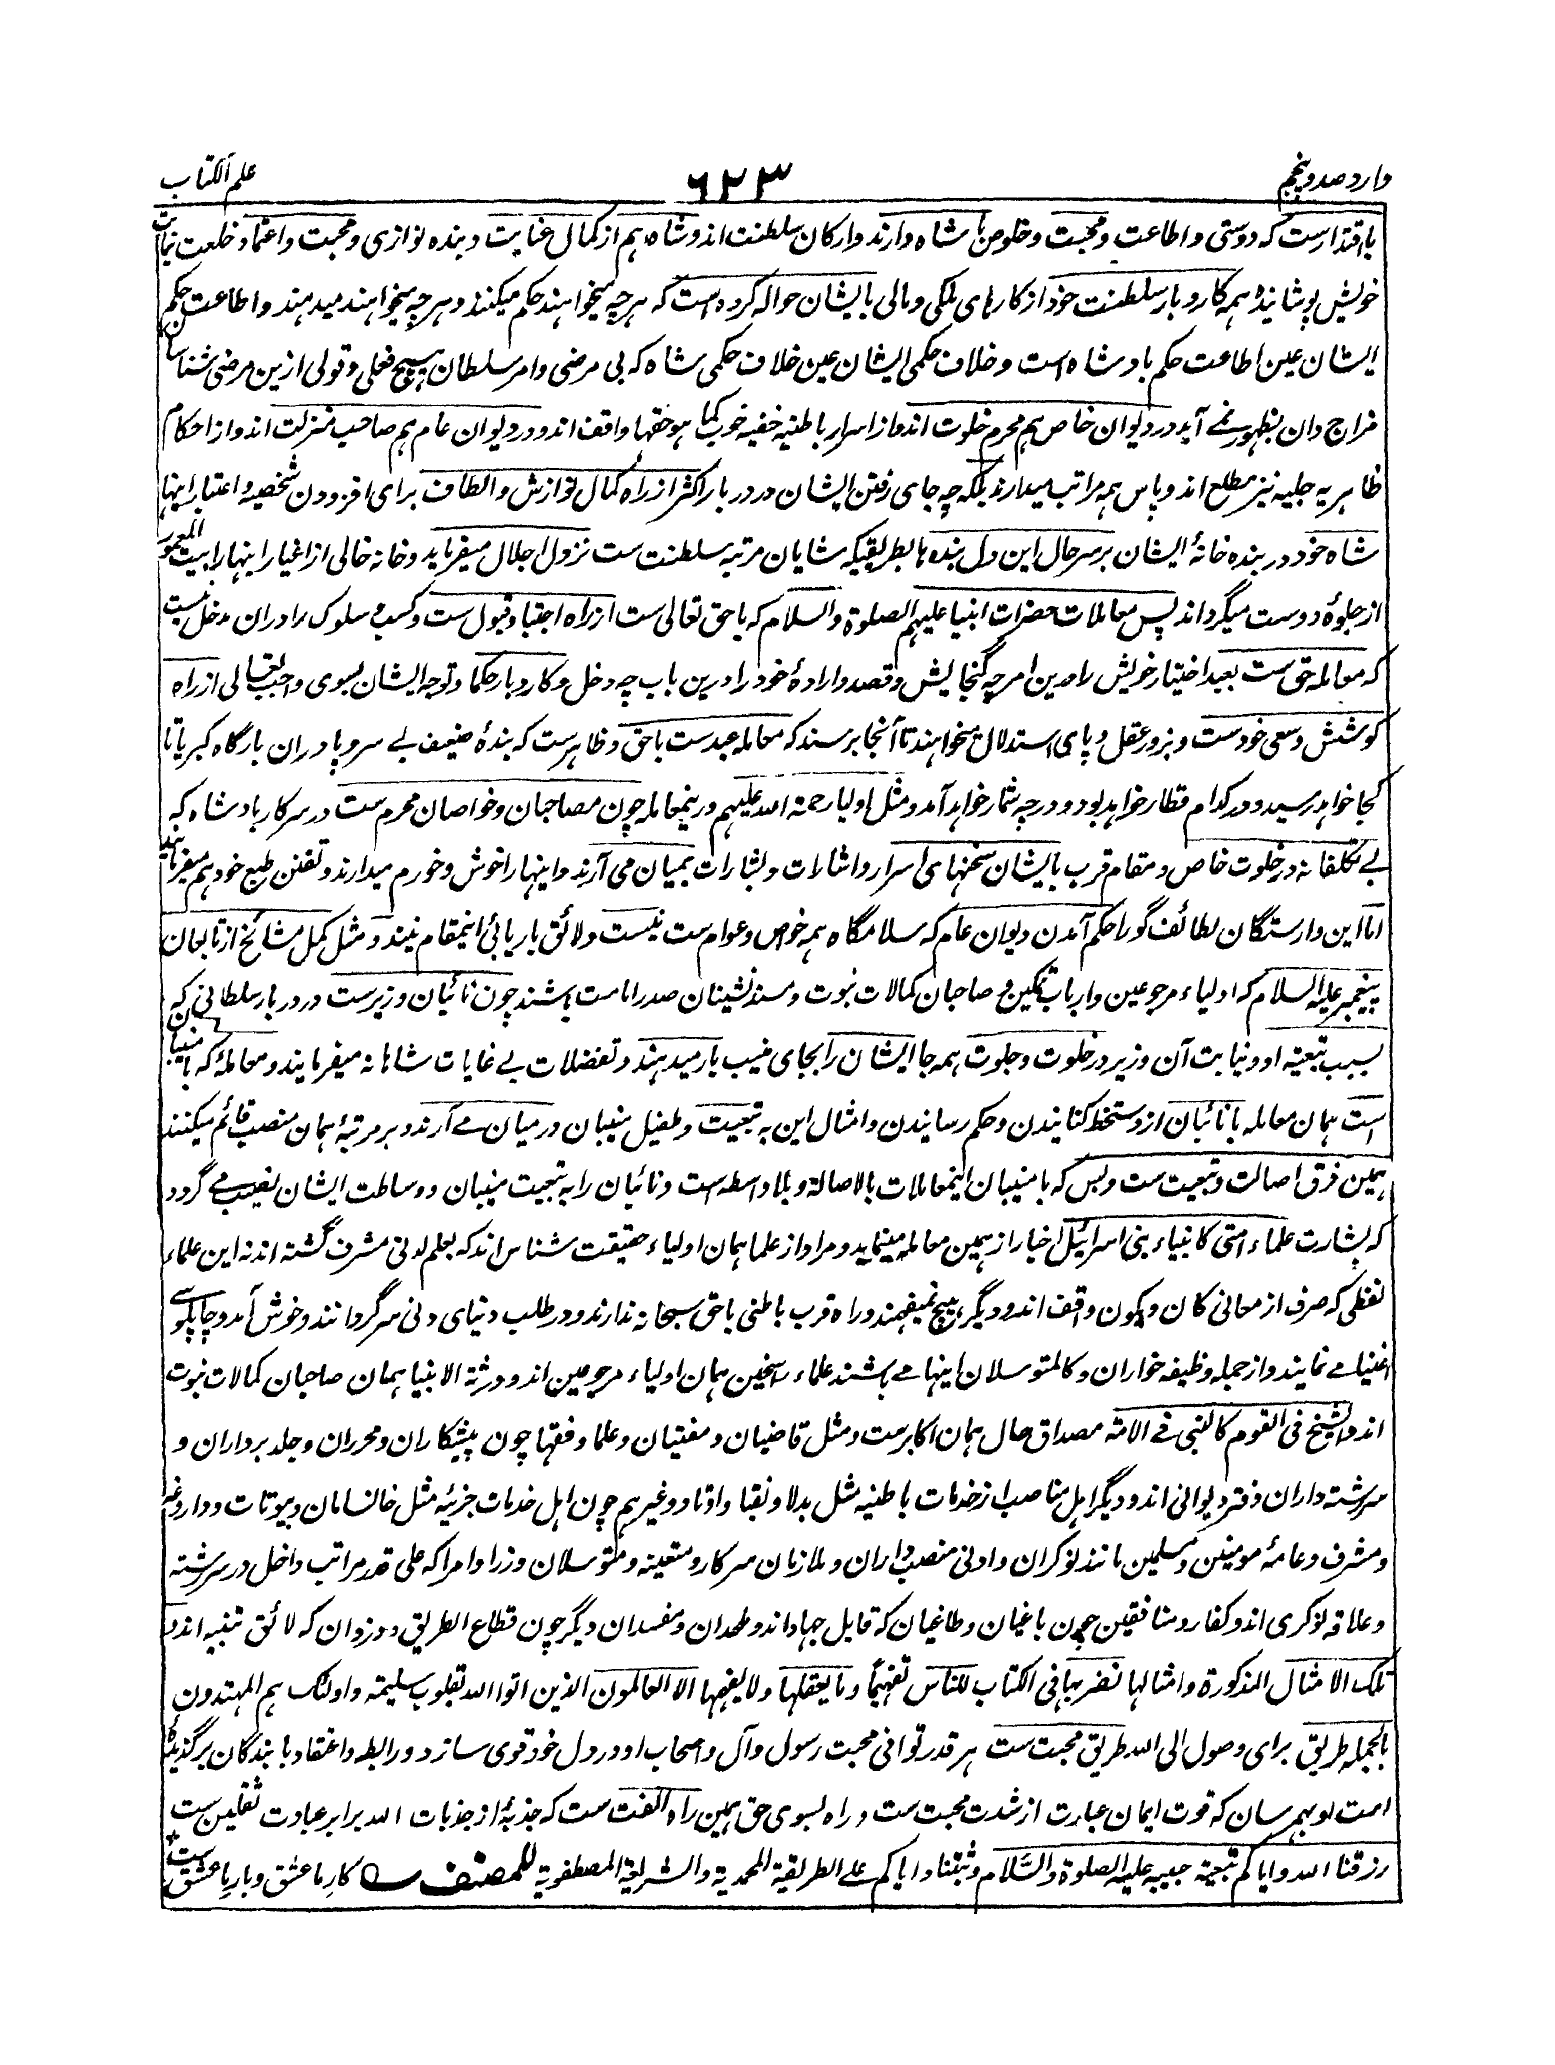 وارد صد و پنجم
۶۲۳
علم الکتاب
با اقتدارست که دوستی و اطاعت و محبت و خلوص با شاه دارند و ارکان سلطنت اند و شاه هم از کمال عنایت و بنده نوازی و محبت و اعتماد خلعت نیابت
خویش پوشانیده همه کاروبار سلطنت خود از کارهای ملکی و مالی بایشان حواله کرده است که هرچه میخواهند حکم میکنند و هرچه میخواهند میدهند و اطاعت حکم
ایشان عین اطاعت حکم بادشاه است و خلاف حکمی ایشان عین خلاف حکمی شاه که بی مرضی و امر سلطان هیچ فعلی و قولی ازین مرضی شناسان
مزاج دان بظهور نمے آید در دیوان خاص هم محرم خلوت اند و از اسرار باطنیه خفیه خوب کما هو حقها واقف اند و در دیوان عام هم صاحب منزلت اند و از احکام
ظاهریه جلیه نیز مطلع اند و پاس همه مراتب میدارند بلکه چه جای رفتن ایشان در دربار اکثر از راه کمال نوازش و الطاف برای افزودن شخصیه و اعتبار اینها
شاه خود در بنده خانهٔ ایشان بر سر حال این دل بنده ها بطریقیکه شایان مرتبه سلطنت ست نزول اجلال میفرماید و خانه خالی از اغیار اینها را بیت المعمور
از جلوهٔ دوست میگرداند پس معاملات حضرات انبیا علیهم الصلوة والسلام که با حق تعالی ست از راه اجتبا و قبول ست و کسب و سلوک را دران مدخل نیست
که معامله حق ست بعبد اختیار خویش را درین امر چه گنجایش و قصد و ارادهٔ خود را درین باب چه دخل و کاروبار حکما و توجه ایشان بسوی واجب تعالی از راه
کوشش و سعی خودست و بزور عقل و پای استدلال میخواهند تا آنجا برسند که معامله عبدست با حق و ظاهرست که بندهٔ ضعیف بے سروپا دران بارگاه کبریا تا
کجا خواهد رسید و در کدام قطار خواهد بود و در چه شمار خواهد آمد و مثل اولیا رحمة الله علیهم درینمعامله چون مصاحبان و خواصان محرم ست در سرکار بادشاه که
بے تکلفانه در خلوت خاص و مقام قرب بایشان سخنهای اسرار و اشارات و بشارات بمیان می آرند و اینها را خوش و خورم میدارند و تفنن طبع خود هم میفرمایند
اما این وارستگان لطائف گو را حکم آمدن دیوان عام که سلامگاه همه خواص و عوام ست نیست و لائق باریابی اینمقام نیند و مثل کمل مشائخ از تابعان
پیغمبر علیه السلام که اولیاء مرجوعین و ارباب تمکین و صاحبان کمالات نبوت و مسند نشینان صدر امامت باشند چون نائبان وزیرست در دربار سلطانی که
بسبب تبعیت او و نیابت آن وزیر در خلوت و جلوت همه جا ایشان را بجای منیب بار میدهند و تفضلات بے غایات شاهانه میفرمایند و معاملهٔ که با منیبان
است همان معامله با نائبان از دستخط کنانیدن و حکم رسانیدن و امثال این به تبعیت و طفیل منیبان درمیان مے آرند و بر مرتبهٔ همان منصب قائم میکنند
همین فرق اصالت و تبعیت ست و بس که با منیبان اینمعاملات بالاصالة و بلاواسطه است و نائبان را به تبعیت منیبان و وساطت ایشان نصیب مے گردد
که بشارت علماء امتی کانبیاء بنی اسرائیل اخبار از همین معامله مینماید و مراد از علما همان اولیاء حقیقت شناس اند که بعلم لدنی مشرف گشته اند نه این علماء
لفظی که صرف از معانی کان و یکون واقف اند و دیگر هیچ نمیفهمند و راه قرب باطنی با حق سبحانه ندارند و در طلب دنیای دنی سرگردانند و خوش آمد و چاپلوسے
اغنیا مے نمایند و از جمله وظیفه خواران و کالمتوسلان اینها مے باشند علماء راسخین همان اولیاء مرجوعین اند و ورثة الانبیا همان صاحبان کمالات نبوت
اند و الشیخ فی القوم کالنبی فے الامة مصداق حال همان اکابرست و مثل قاضیان و مفتیان و علما و فقها چون پیشکاران و محرران و جلد برداران و
سرشته داران دفتر دیوانی اند و دیگر اهل مناصب از خدمات باطنیه مثل بدلا و نقبا و اوتاد و غیرهم چون اهل خدمات جزئیه مثل خانسامان و بیوتات و داروغه
و مشرف و عامهٔ مومنین و مسلمین مانند نوکران و ادنی منصبداران و ملازمان سرکار و متعینه و متوسلان وزرا و امرا که علی قدر مراتب داخل در سررشته
و علاقه نوکری اند و کفار و منافقین چون باغیان و طاغیان که قابل جهاد اند و ملحدان و مفسدان دیگر چون قطاع الطریق و دزدان که لائق تنبیه اند
تلک الامثال المذکورة و امثالها نضربها فی الکتاب للناس تفهیمًا و ما یعقلها و لا یفهمها الا العالمون الذین اتوا الله بقلوب سلیمة و اولئک هم المهتدون
بالجمله طریق برای وصول الی الله طریق محبت ست هر قدر توانی محبت رسول و آل و اصحاب او در دل خود قوی ساز و رابطه و اعتقاد با بندگان برگزیدهٔ
امت او بهم رسان که قوت ایمان عبارت از شدت محبت ست و راه بسوی حق همین راه الفت ست که جذبهٔ از جذبات الله برابر عبادت ثقلین ست
رزقنا الله و ایاکم تبعیة حبیبه علیه الصلوة والسَّلام و ثبتنا و ایاکم علے الطریقة المحمدیة والشریعة المصطفویة للمصنف کارِ ما عشق و بارِ ما عشق ست